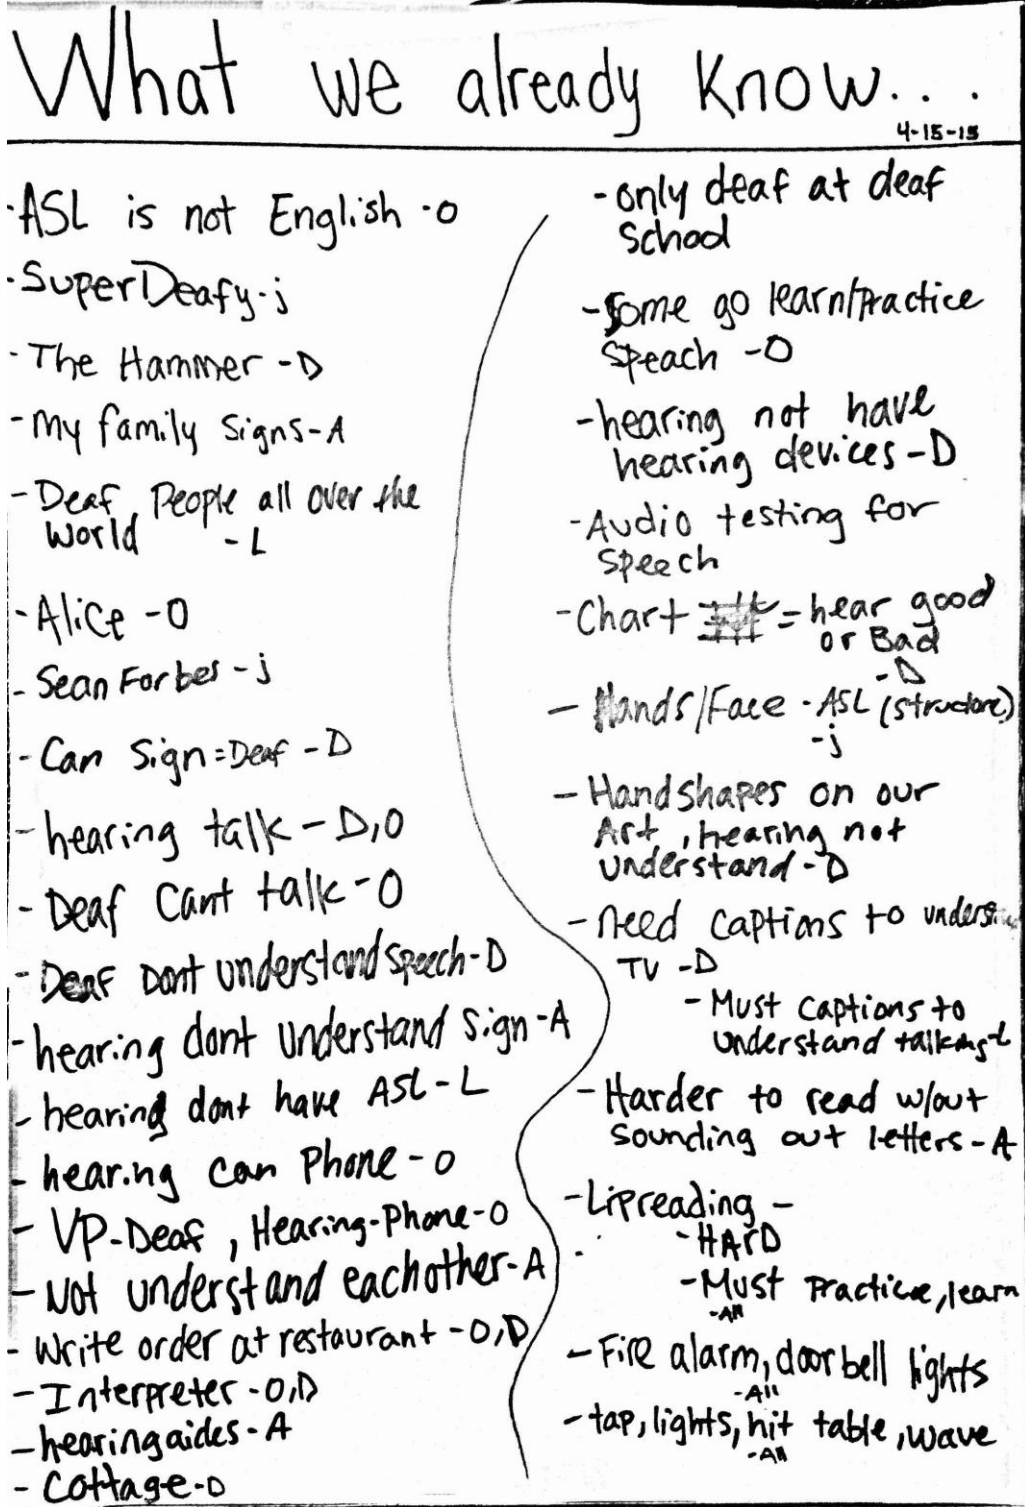 What we already know...
4-15-15
-ASL is not English -O
-SuperDeafy-j
-The Hammer -D
-My family Signs-A
-Deaf People all over the
World -L
-Alice -O
-Sean Forbes -j
-Can Sign=Deaf -D
-hearing talk -D,O
-Deaf Cant talk -O
-Deaf Dont understand speech-D
-hearing dont understand sign-A
-hearing dont have ASL-L
-hearing can Phone -O
-VP-Deaf, Hearing-Phone-O
-Not understand eachother-A
-Write order at restaurant -O,D
-Interpreter -O,D
-hearingaides-A
-Cottage-D
-only deaf at deaf
School
-Some go learn/Practice
Speach -O
-hearing not have
hearing devices -D
-Audio testing for
Speech
-Chart = hear good
or Bad
-D
-Hands/Face -ASL (structure)
-j
-Handshapes on our
Art, hearing not
understand -D
-need captions to
TV -D
-Must captions to
understand talking-L
-Harder to read w/out
sounding out letters-A
-Lipreading -
-HArD
-Must Practice, learn
-All
-Fire alarm, doorbell lights
-All
-tap, lights, hit table, wave
-All